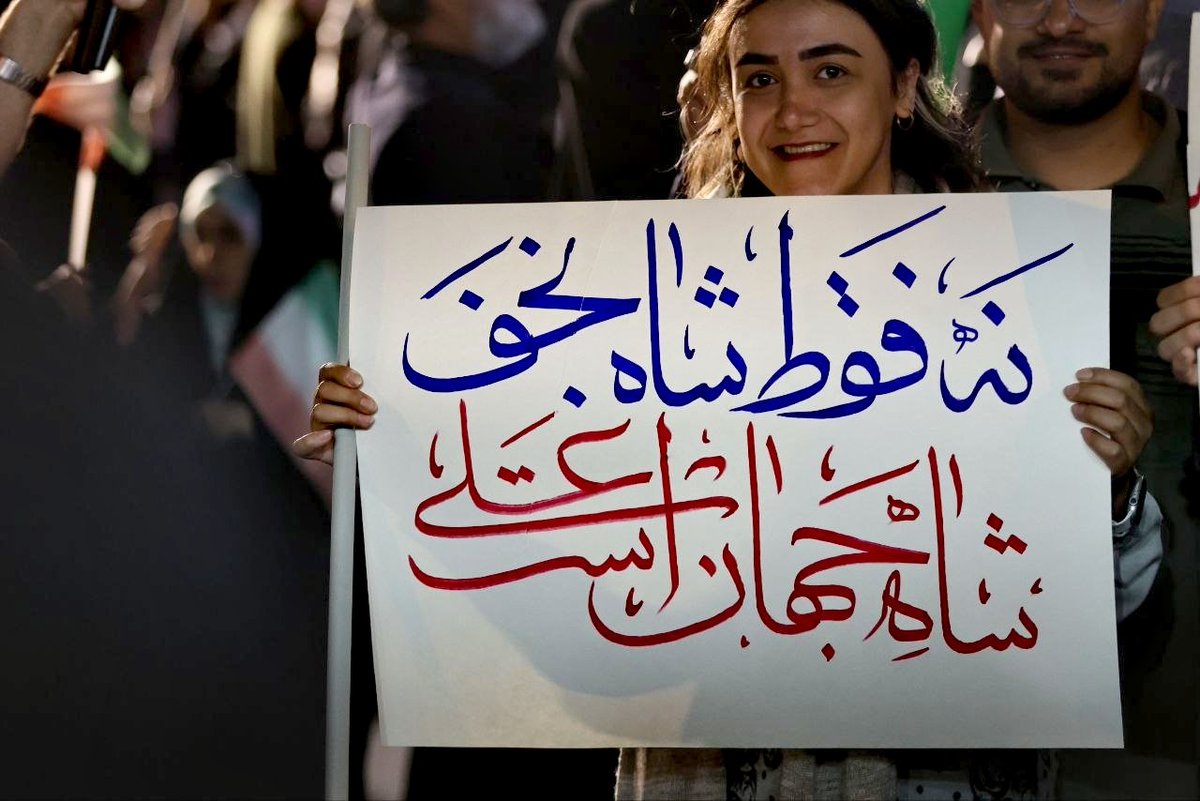 نه فقط شاه نجف
شاهِ جهان است علی